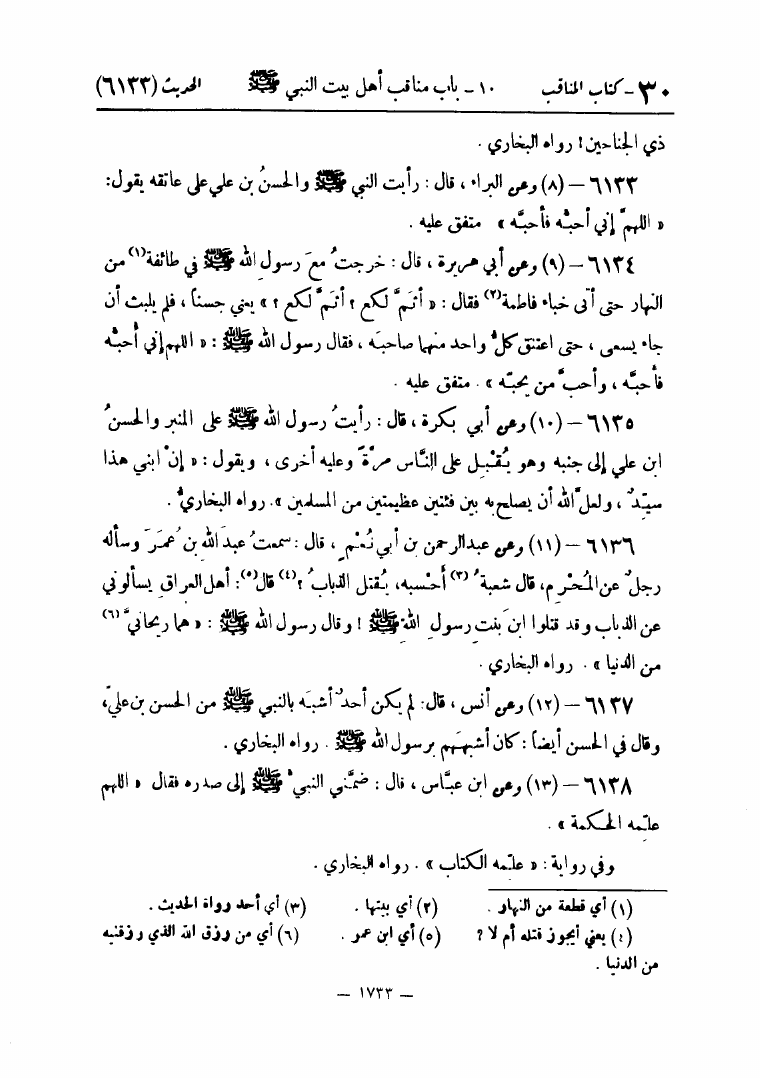 ٣٠ - كتاب المناقب ١٠ - باب مناقب أهل بيت النبي ﷺ الحديث (٦١٣٣)
ذي الجناحين! رواه البخاري .
٦١٣٣ – (٨) وعن البراء ، قال : رأيت النبي ﷺ والحسنُ بن علي على عاتقه يقول:
« اللهمَّ إني أحبُّه فأحبَّه » متفق عليه .
٦١٣٤ – (٩) وعن أبي هريرة ، قال : خرجتُ معَ رسولِ الله ﷺ في طائفة(١) من
النهار حتى أتى خباء فاطمة(٢) فقال : « أثمَّ لكع ؟ أثمَّ لكع ؟ » يعني حسناً ، فلم يلبث أن
جاء يسعى ، حتى اعتنق كلُّ واحد منهما صاحبَه ، فقال رسول الله ﷺ : « اللهم إني أُحبُّه
فأَحبَّه ، وأحبَّ من يحبّه » . متفق عليه .
٦١٣٥ – (١٠) وعن أبي بكرة ، قال : رأيتُ رسول الله ﷺ على المنبر والحسنُ
ابن علي إلى جنبه وهو يُقْبِل على النَّاس مرَّةً وعليه أخرى ، ويقول : « إنْ ابني هذا
سيّدٌ ، ولعلَّ الله أن يصلح به بين فئتين عظيمتين من المسلمين ». رواه البخاريُّ .
٦١٣٦ – (١١) وعن عبدالرحمن بن أبي نُعْمٍ ، قال : سمعتُ عبدَ الله بن عُمَرَ وسأله
رجلٌ عن المُحْرِم، قال شعبةُ (٣) أَحْسبه، يُقتل الذبابُ ؟(٤) قال(٥): أهل العراق يسألوني
عن الذباب وقد قتلوا ابنَ بنتِ رسولِ اللهِ ﷺ ! وقال رسول الله ﷺ : « هما ريحانيَّ (٦)
من الدنيا » . رواه البخاري .
٦١٣٧ – (١٢) وعن أنس ، قال: لم يكن أحدٌ أشبَه بالنبي ﷺ من الحسن بن عليّ،
وقال في الحسن أيضاً : كان أشبهَهم برسول الله ﷺ . رواه البخاري .
٦١٣٨ – (١٣) وعن ابن عبَّاس ، قال : ضمَّني النبيُّ ﷺ إلى صدره فقال « اللهم
علّمه الحكمة » .
وفي رواية : « علّمه الكتاب » . رواه البخاري .
(١) أي قطعة من النهار . (٢) أي بيتها . (٣) أي أحد رواة الحديث .
(٤) يعني أيجوز قتله أم لا ؟ (٥) أي ابن عمر . (٦) أي من رزق الله الذي رزقنيه
من الدنيا .
– ١٧٣٣ –